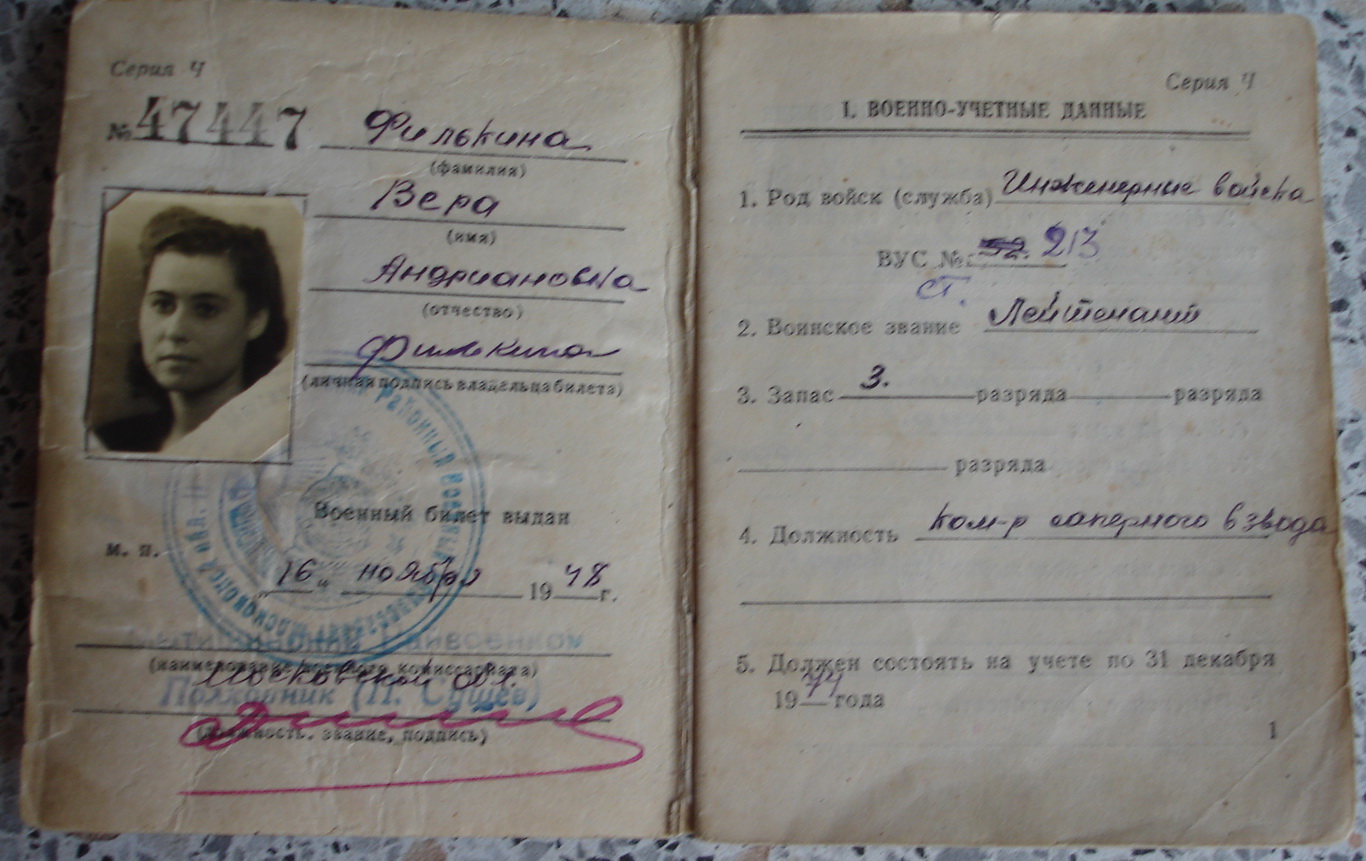 Серия Ч
№ 47447
Филькина
(фамилия)
Вера
(имя)
Андриановна
(отчество)
Филькина
(личная подпись владельца билета)
Военный билет выдан
м. п.
„16" ноября 1948 г.
Райвоенком
(наименование военного комиссариата)
Московской обл.
Полковник (П. Сушев)
(должность, звание, подпись)
Районный Военный
Московской обл.
Серия Ч
I. ВОЕННО-УЧЕТНЫЕ ДАННЫЕ
1. Род войск (служба) Инженерные войска
ВУС № 213
ст.
2. Воинское звание Лейтенант
3. Запас 3. разряда разряда
разряда
4. Должность Ком-р саперного взвода
5. Должен состоять на учете по 31 декабря
1974 года
1